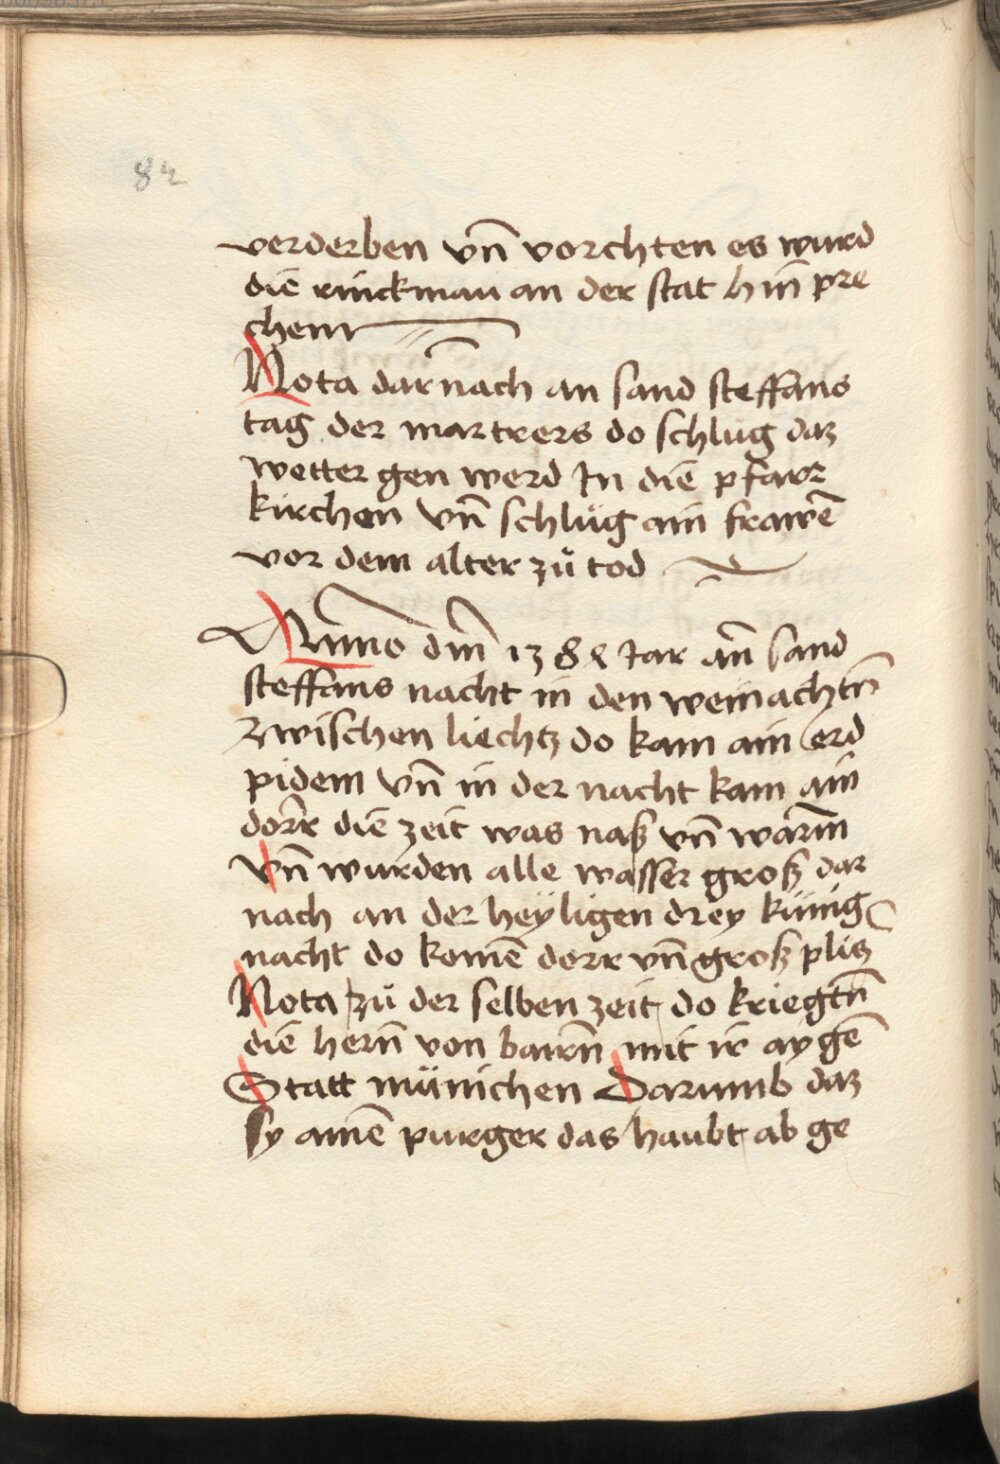 84
verderben vn̄ vorchten es wurd
die rinckmau an der stat hin pre
chenn
Nota darnach an sand steffans
tag der martrers do schlug daz
wetter gen werd In die pfarr
kirchen vn̄ schlüg ain frawē
vor dem alter zů tod
Anno dm̄ 1384 Jar an sand
steffans nacht in den weinachtn̄
zwischen liechtz do kam ain erd
pidem vn̄ in der nacht kam ain
dorr die zeit was naß vn̄ warm
vn̄ wurden alle wasser groß dar
nach an der heyligen drey künig
nacht do komē dorr vn̄ groß plitz
Nota zů der selben zeit do kriegtn̄
die hern̄ von bairn̄ mit ir aygē
Statt münichen Darumb daz
sy ainē purger das haubt ab ge